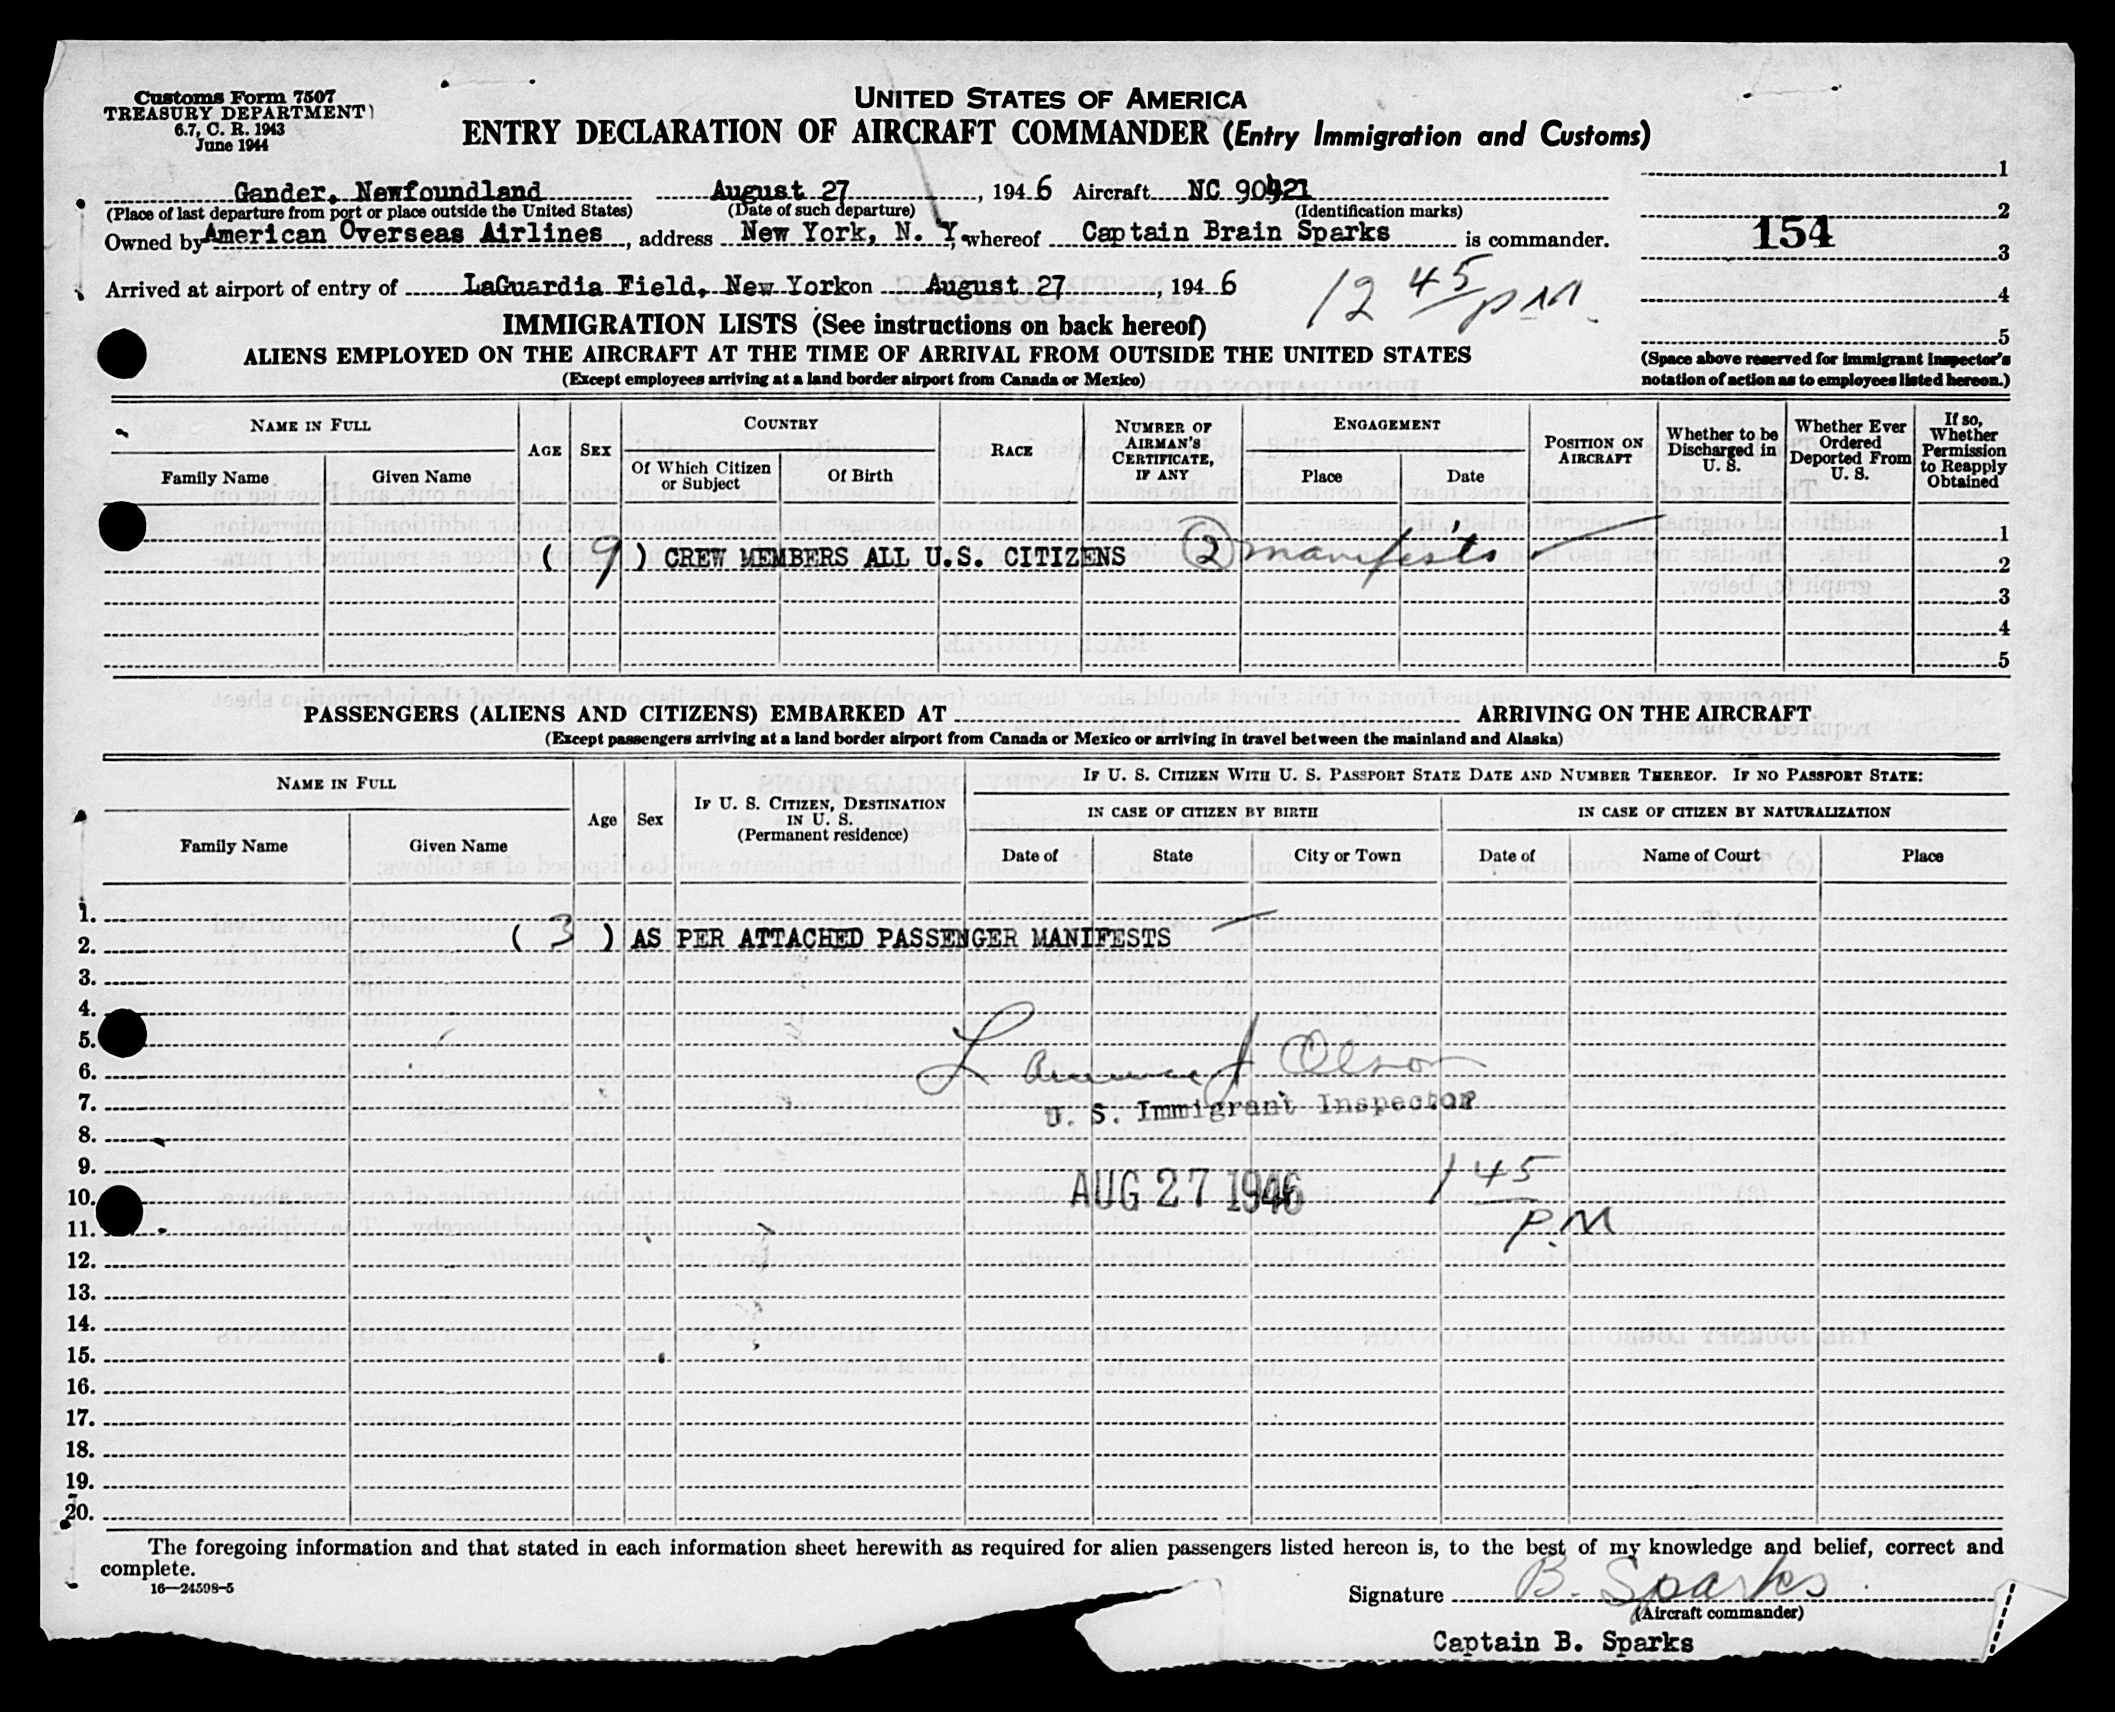 Customs Form 7507
TREASURY DEPARTMENT
6.7, C. R. 1943
June 1944
UNITED STATES OF AMERICA
ENTRY DECLARATION OF AIRCRAFT COMMANDER (Entry Immigration and Customs)
Gander, Newfoundland August 27, 1946 Aircraft NC 90921
(Place of last departure from port or place outside the United States) (Date of such departure) (Identification marks)
Owned by American Overseas Airlines, address New York, N. Y. whereof Captain Brain Sparks is commander.
Arrived at airport of entry of LaGuardia Field, New York on August 27, 1946
12 45 PM
1
2
154
3
4
5
(Space above reserved for immigrant inspector's
notation of action as to employees listed hereon.)
IMMIGRATION LISTS (See instructions on back hereof)
ALIENS EMPLOYED ON THE AIRCRAFT AT THE TIME OF ARRIVAL FROM OUTSIDE THE UNITED STATES
(Except employees arriving at a land border airport from Canada or Mexico)
NAME IN FULL
Family Name
Given Name
AGE
SEX
COUNTRY
Of Which Citizen
or Subject
Of Birth
RACE
NUMBER OF
AIRMAN'S
CERTIFICATE,
IF ANY
ENGAGEMENT
Place
Date
POSITION ON
AIRCRAFT
Whether to be
Discharged in
U. S.
Whether Ever
Ordered
Deported From
U. S.
If so,
Whether
Permission
to Reapply
Obtained
1
( 9 ) CREW MEMBERS ALL U.S. CITIZENS 2 manifests 2
3
4
5
PASSENGERS (ALIENS AND CITIZENS) EMBARKED AT ARRIVING ON THE AIRCRAFT
(Except passengers arriving at a land border airport from Canada or Mexico or arriving in travel between the mainland and Alaska)
NAME IN FULL
Family Name
Given Name
Age
Sex
IF U. S. CITIZEN, DESTINATION
IN U. S.
(Permanent residence)
IF U. S. CITIZEN WITH U. S. PASSPORT STATE DATE AND NUMBER THEREOF. IF NO PASSPORT STATE:
IN CASE OF CITIZEN BY BIRTH
IN CASE OF CITIZEN BY NATURALIZATION
Date of
State
City or Town
Date of
Name of Court
Place
1.
2. ( 3 ) AS PER ATTACHED PASSENGER MANIFESTS
3.
4.
5.
6. Lawrence J Olson
7. U. S. Immigrant Inspector
8.
9.
10. AUG 27 1946 1 45
11. P.M
12.
13.
14.
15.
16.
17.
18.
19.
20.
The foregoing information and that stated in each information sheet herewith as required for alien passengers listed hereon is, to the best of my knowledge and belief, correct and
complete.
16—24598-5
Signature B. Sparks
(Aircraft commander)
Captain B. Sparks